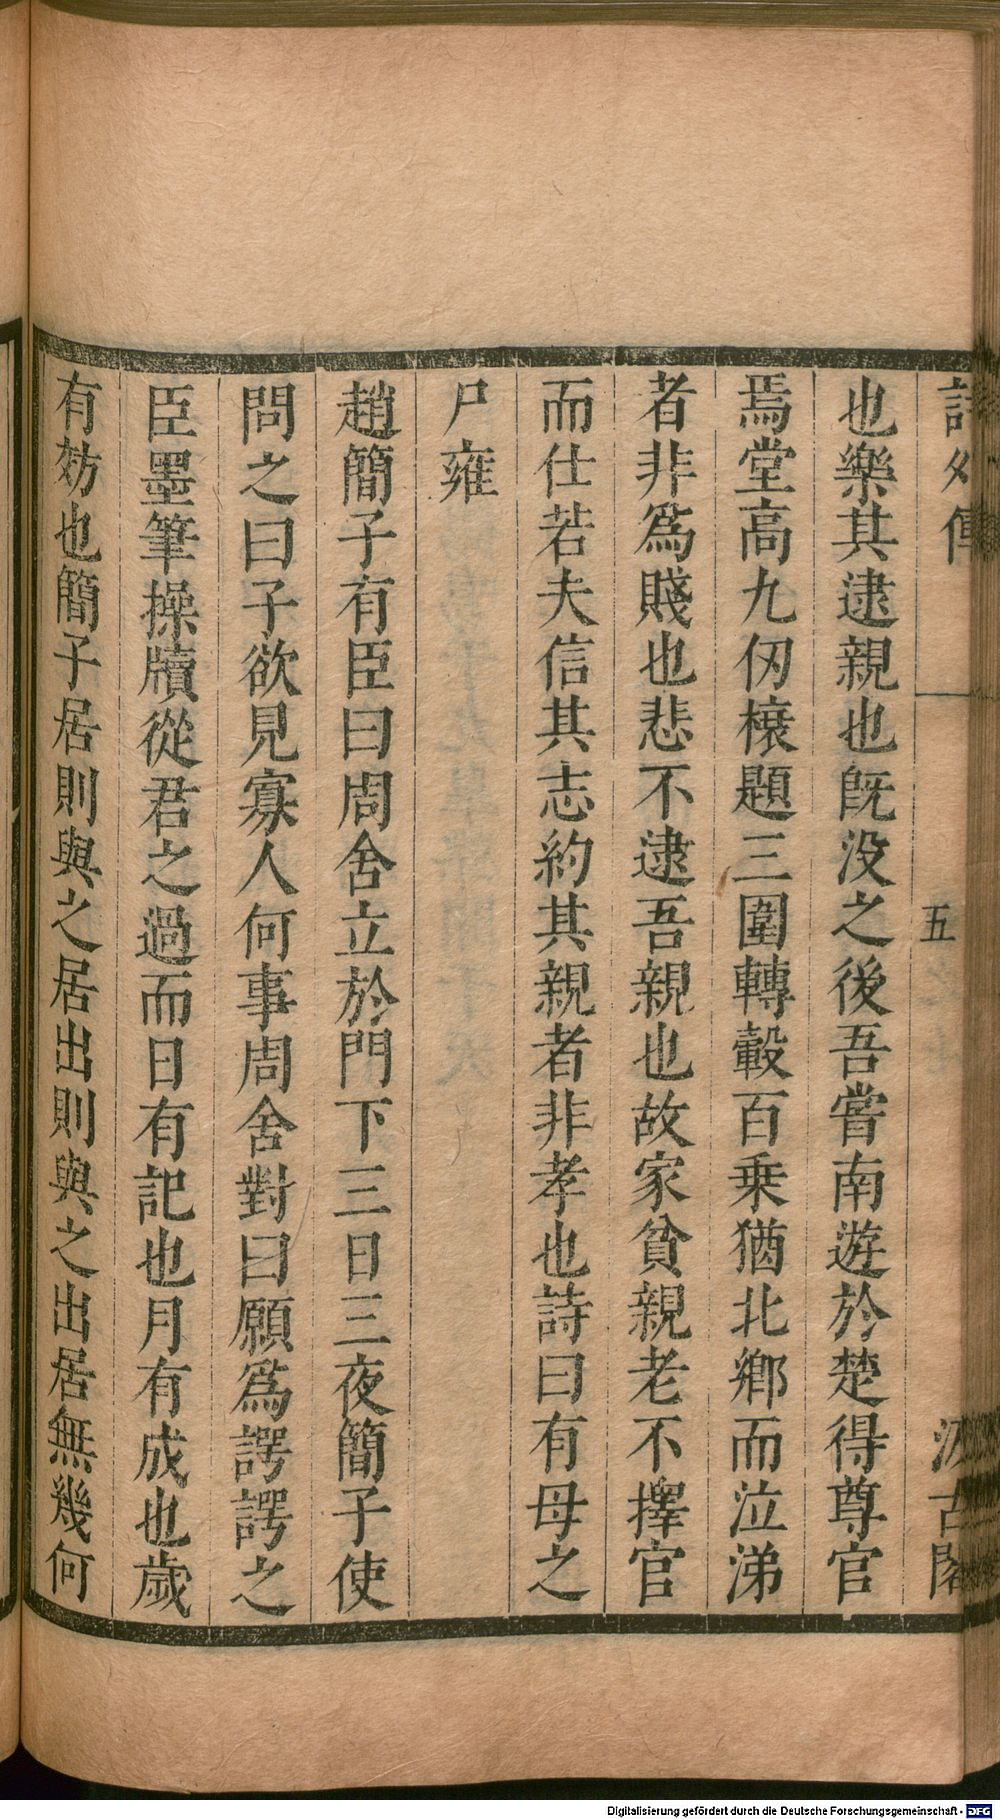 詩外傳 五 汲古閣
也樂其逮親也旣没之後吾嘗南遊於楚得尊官
焉堂高九仞榱題三圍轉轂百乗猶北鄉而泣涕
者非爲賤也悲不逮吾親也故家貧親老不擇官
而仕若夫信其志約其親者非孝也詩曰有母之
尸雍
趙簡子有臣曰周舍立於門下三日三夜簡子使
問之曰子欲見寡人何事周舍對曰願爲諤諤之
臣墨筆操牘從君之過而日有記也月有成也歲
有効也簡子居則與之居出則與之出居無幾何
Digitalisierung gefördert durch die Deutsche Forschungsgemeinschaft - DFG